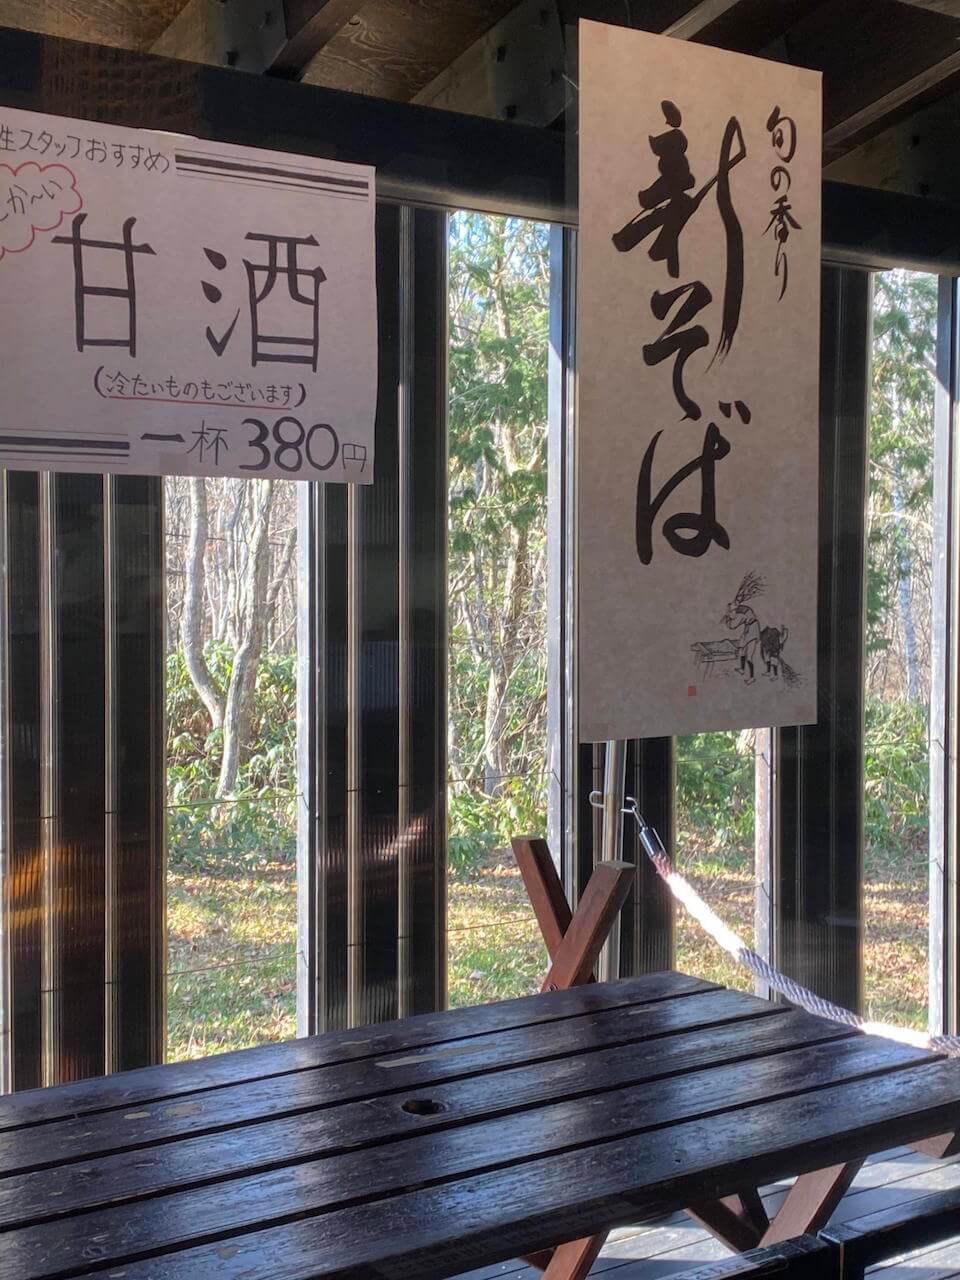 性スタッフおすすめ
か〜い
甘酒
(冷たいものもございます)
一杯 380円
旬の香り
新そば